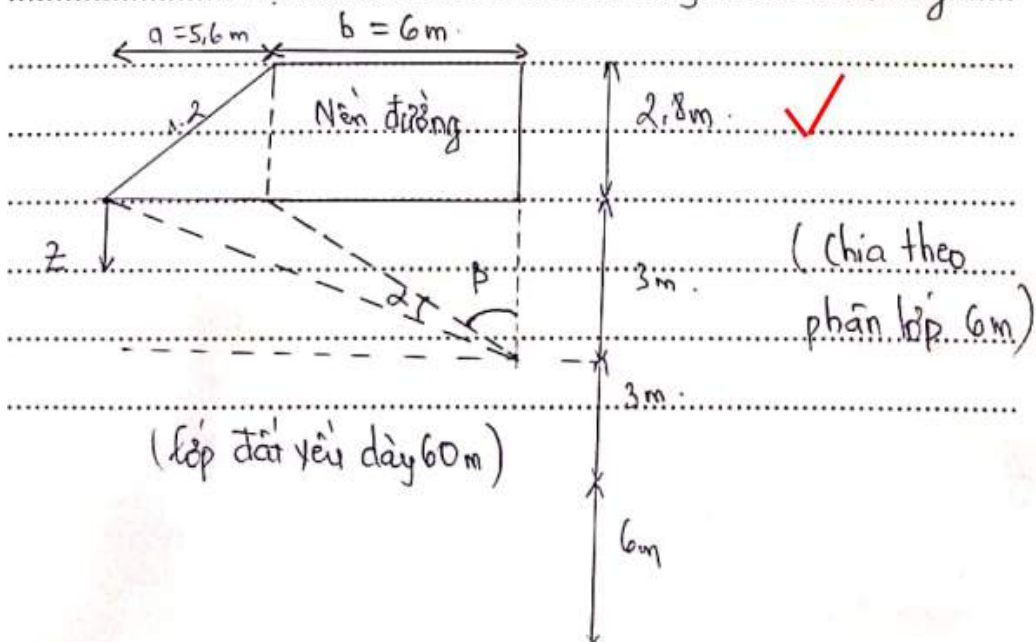 a = 5,6 m
b = 6 m.
1:2
Nền đường
2,8m.
Z
α
β
3m.
(Chia theo
phân lớp 6m)
3m.
(lớp đất yếu dày 60m)
6m